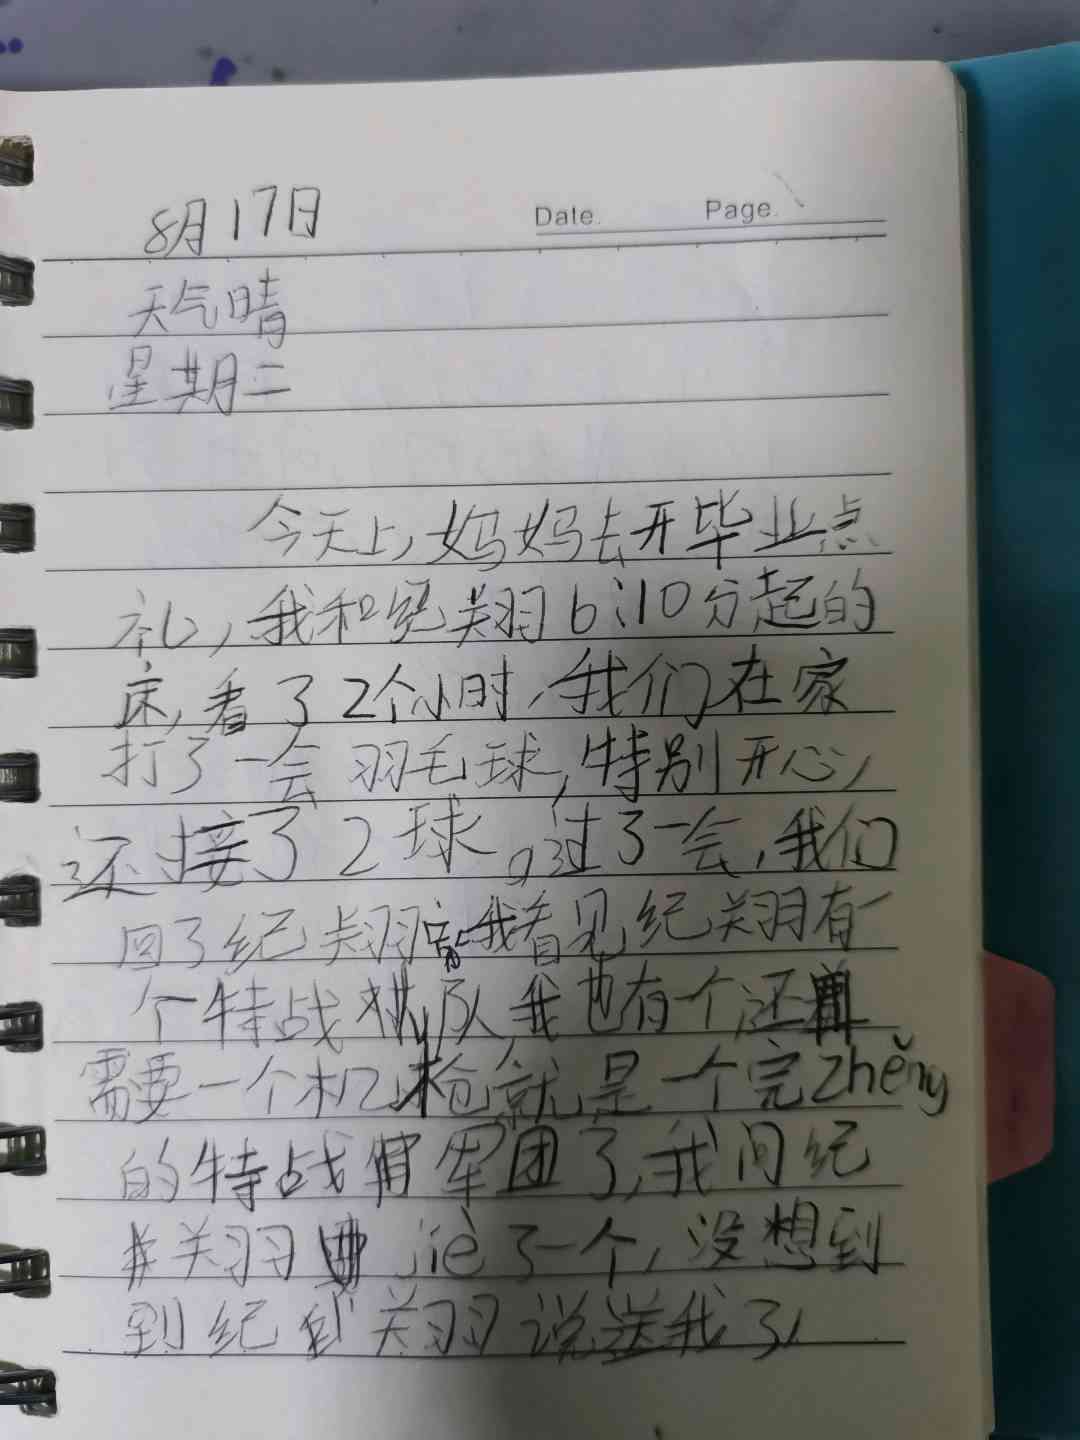 8月17日
Date. Page.
天气晴
星期二
今天上,妈妈去开毕业点
礼,我和纪翔6:10分起的
床,看了2个小时,我们在家
打了一会羽毛球,特别开心,
还接了2球。过了一会,我们
回了纪翔家我看见纪翔有一
个特战队,我也有个,还
需要一个机枪就是一个完zhěng
的特战军团了,我问纪
翔jiè了一个,没想到
到纪翔说送我了,